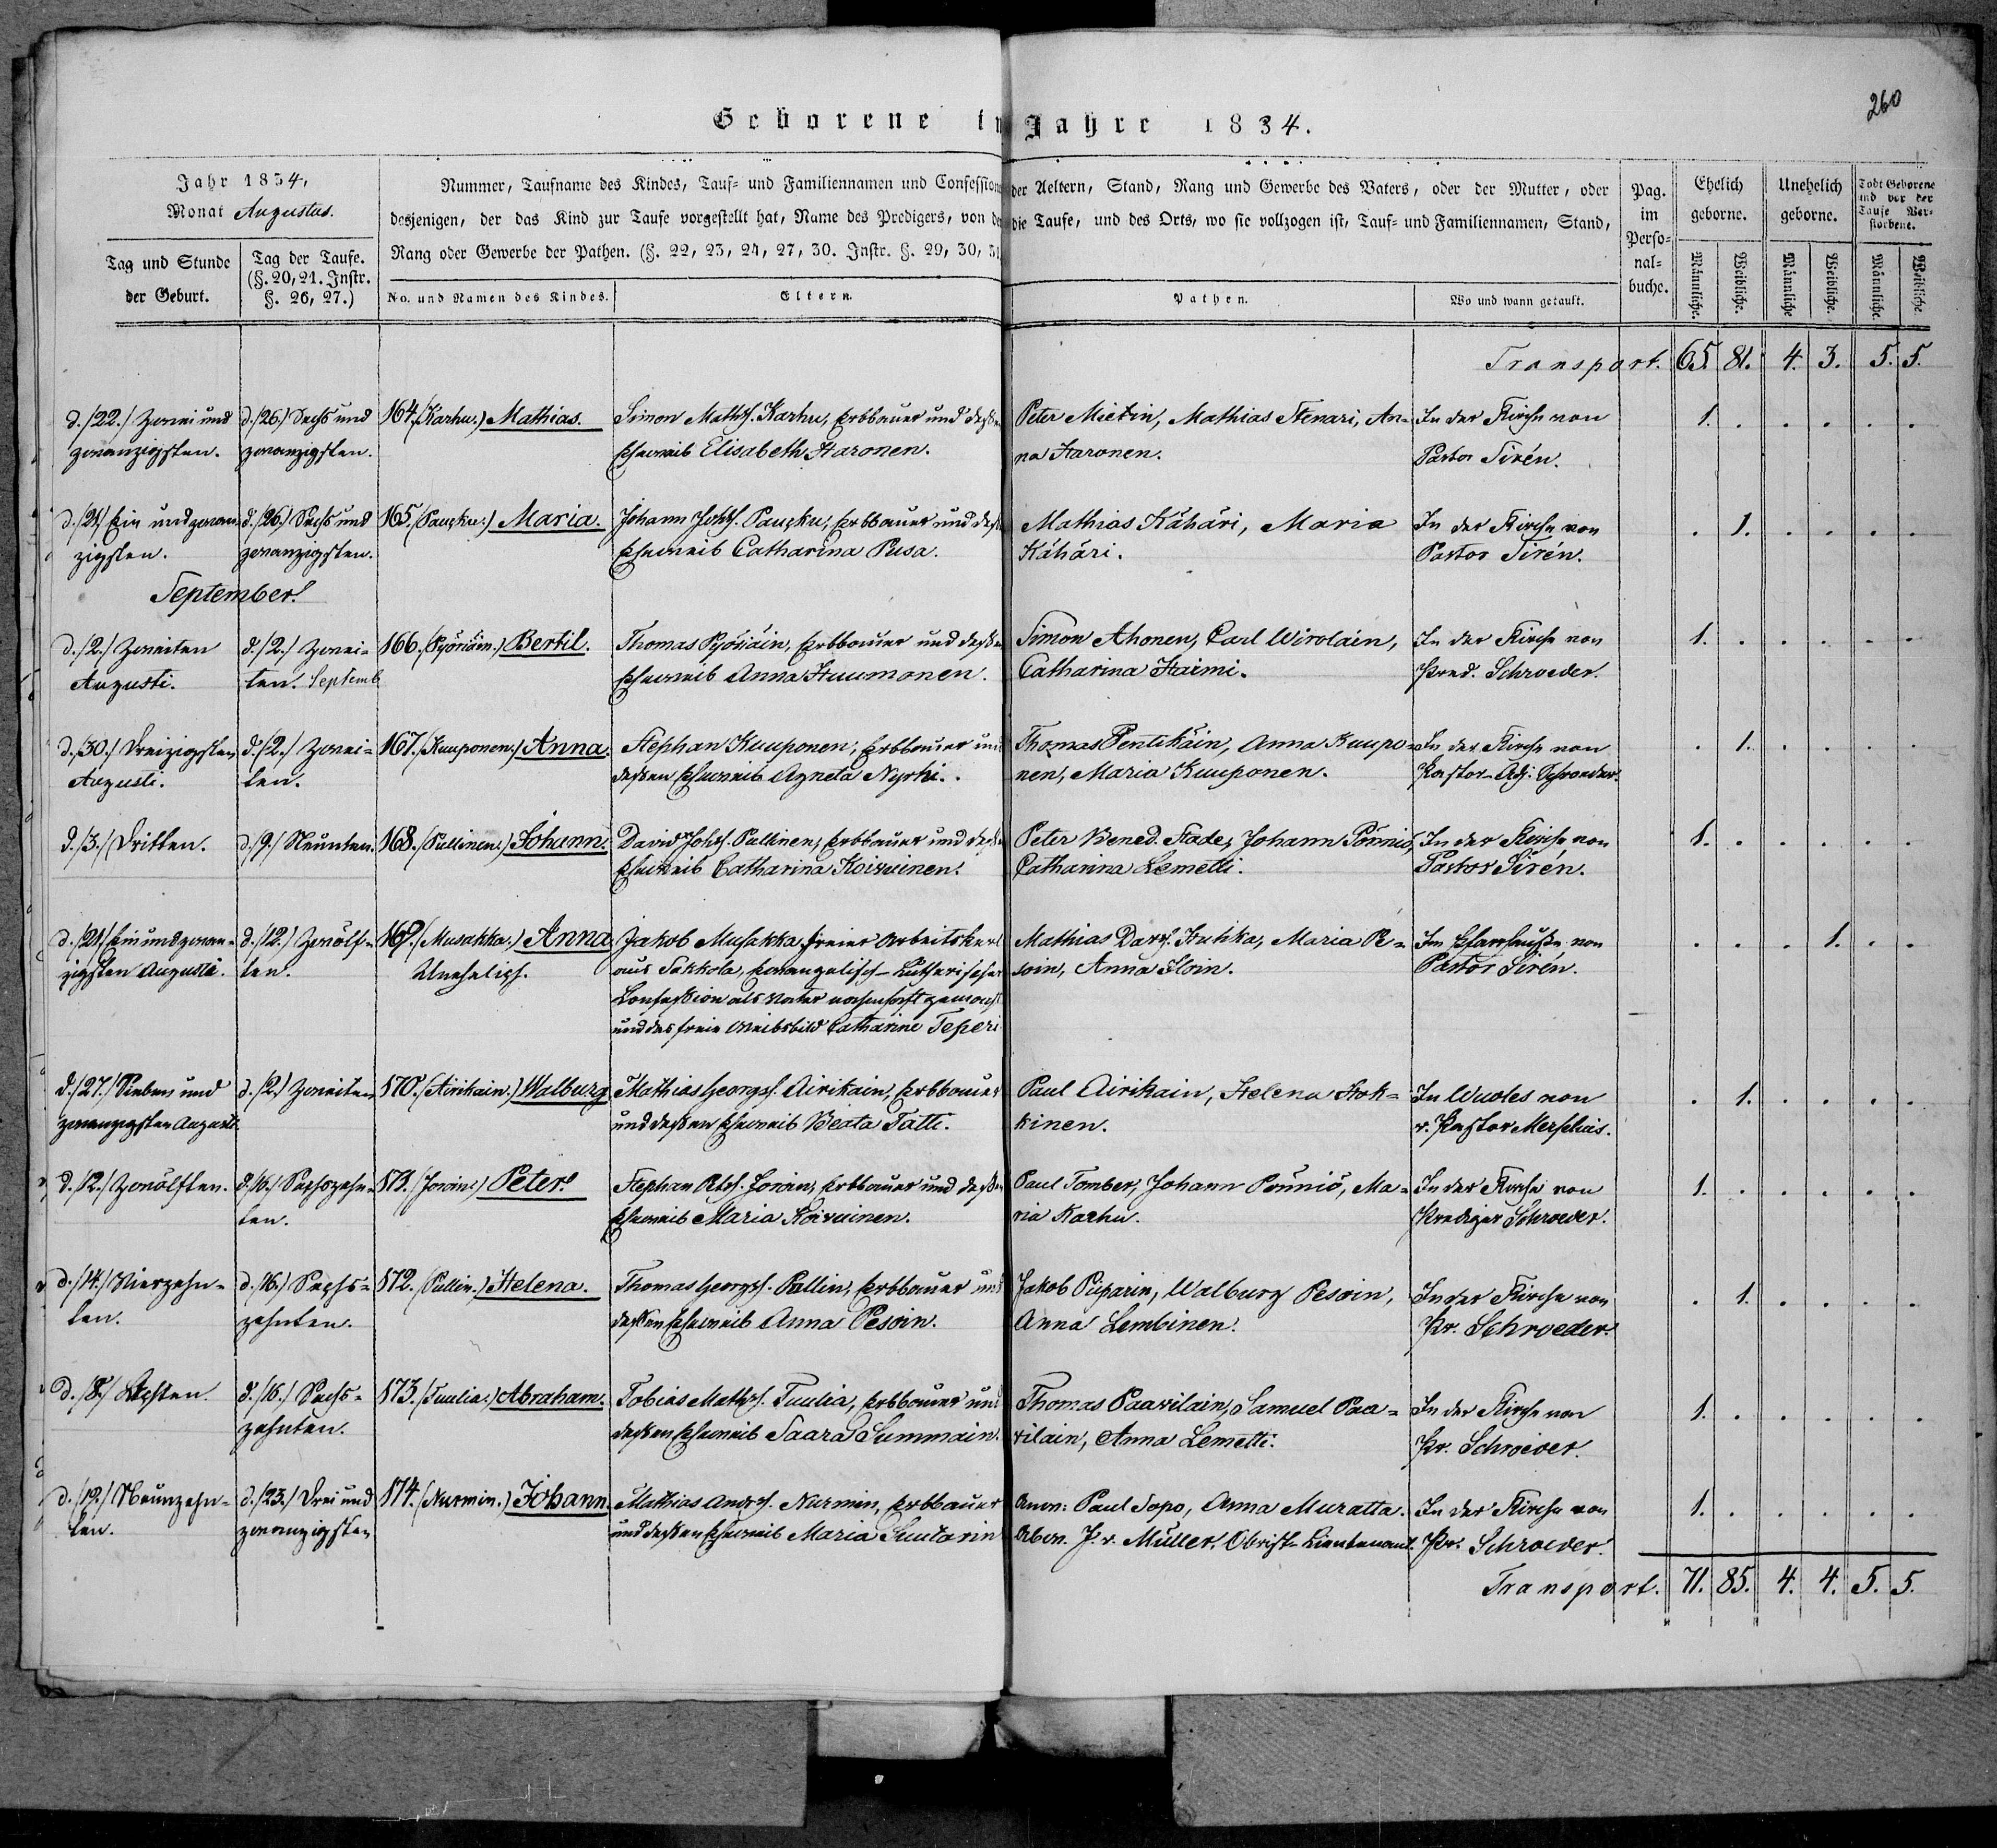 260
Geborene im Jahre 1834.
Jahr 1834,
Monat Augustus.
Tag und Stunde
der Geburt.
Tag der Taufe.
(§. 20, 21. Instr.
§. 26, 27.)
Nummer, Taufname des Kindes, Tauf= und Familiennamen und Confession der Aeltern, Stand, Rang und Gewerbe des Vaters, oder der Mutter, oder
desjenigen, der das Kind zur Taufe vorgestellt hat, Name des Predigers, von dem die Taufe, und des Orts, wo sie vollzogen ist, Tauf= und Familiennamen, Stand,
Rang oder Gewerbe der Pathen. (§. 22, 23, 24, 27, 30. Instr. §. 29, 30, 31
No. und Namen des Kindes.
Eltern.
Pathen.
Wo und wann getauft.
Pag.
im
Perso=
nal=
buche.
Ehelich
geborne.
Unehelich
geborne.
Todt Geborene
und vor der
Taufe Ver=
storbene.
Männliche.
Weibliche.
Männliche
Weibliche.
Männliche.
Weibliche
Transport. 65. 81. 4. 3. 5. 5.
d. /22./ Zwei und
zwanzigsten.
d. /26./ Sechs und
zwanzigsten.
164. (Karhu.) Mathias.
Simon Mathss. Karhu, Erbbauer und dessen
Eheweib Elisabeth Haronen.
Peter Mietin, Mathias Stenari, An=
na Haronen.
In der Kirche von
Pastor Sirén.
1. . . . . .
d. /21/ Ein und zwan=
zigsten.
d. /26./ Sechs und
zwanzigsten.
165. (Pauzku.) Maria.
Johann Johss. Pauzku, Erbbauer und dess
Eheweib Catharina Pusa.
Mathias Kähäri, Maria
Kähäri.
In der Kirche von
Pastor Sirén.
. 1. . . . .
September.
d. /2./ Zweiten
Augusti.
d. /2./ Zwei=
ten. Septemb
166. (Pyöriäin.) Bertil.
Thomas Pyöriäin, Erbbauer und dessen
Eheweib Anna Huumonen.
Simon Ahonen, Carl Wirolain,
Catharina Haimi.
In der Kirche von
Pred. Schroeder.
1. . . . . .
d. /30./ Dreizigsten
Augusti.
d. /2./ Zwei=
ten.
167. (Kuuponen.) Anna.
Stephan Kuuponen, Erbbauer und
dessen Eheweib Agneta Nyrhi.
Thomas Pentikäin, Anna Kuupo=
nen, Maria Kuuponen.
In der Kirche von
Pastor-Adj. Schroeder.
. 1. . . . .
d. /3./ Dritten.
d. /9./ Neunten.
168. (Pullinen.) Johann.
David Johss. Pullinen, Erbbauer und dessen
Eheweib Catharina Koivuinen.
Peter Bened. Stade, Johann Pönniö,
Catharina Lemetti.
In der Kirche von
Pastor Sirén.
1. . . . . .
d. /21/ Ein und zwan=
zigsten Augusti.
d. /12./ Zwölf=
ten.
169. (Musakka.) Anna
Unehelich.
Jakob Musakka, freier Arbeitskerl
aus Sakkola, Evangelisch-Lutherischer
Confession als Vater namhaft gemacht
und das freie Weibsbild Catharine Teperi
Mathias Davs. Huhka, Maria Pe=
soin, Anna Iloin.
Im Pfarrhause von
Pastor Sirén.
. . . 1. . .
d. /27./ Sieben und
zwanzigsten Augusti
d. /2./ Zweiten
170. (Airikain.) Walburg
Mathias Georgss. Airikain, Erbbauer
und dessen Eheweib Beata Tatti.
Paul Airikain, Helena Hok=
kinen.
In Wuoles von
v. Pastor Merschius.
. 1. . . . .
d. /12./ Zwölften.
d. /16./ Sechszehn=
ten.
171. (Jovain.) Peter.
Stephan Petss. Jovain, Erbbauer und dessen
Eheweib Maria Koivuinen.
Paul Tomber, Johann Pönniö, Ma=
ria Karhu.
In der Kirche von
Prediger Schroeder.
1. . . . . .
d. /14./ Vierzehn=
ten.
d. /16./ Sechs=
zehnten.
172. (Pullin.) Helena.
Thomas Georgss. Pullin, Erbbauer und
dessen Eheweib Anna Pesoin.
Jakob Piiparin, Walburg Pesoin,
Anna Lembinen.
In der Kirche von
Pr. Schroeder.
. 1. . . . .
d. /8./ Achten.
d. /16./ Sechs=
zehnten.
173. (Tuulia.) Abraham.
Tobias Mathss. Tuulia, Erbbauer und
dessen Eheweib Saara Summain.
Thomas Paavilain, Samuel Paa=
vilain, Anna Lemetti.
In der Kirche von
Pr. Schroeder.
1. . . . . .
d. /19./ Neunzehn=
ten.
d. /23./ Drei und
zwanzigsten
174. (Nurmin.) Johann.
Mathias Andrss. Nurmin, Erbbauer
und dessen Eheweib Maria Suutarin
Anw: Paul Sopo, Anna Muratta.
Abw. J. v. Müller, Obrist-Lieutenant.
In der Kirche von
Pr. Schroeder.
1. . . . . .
Transport. 71. 85. 4. 4. 5. 5.